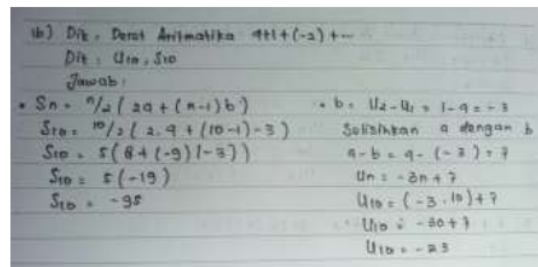 1b) Dik : Deret Aritmatika 4+1+(-2)+...
Dit : U10, S10
Jawab :
• Sn = n/2 (2a + (n-1) b)
S10 = 10/2 (2.4 + (10-1) -3)
S10 = 5 (8 + (-9)(-3))
S10 = 5 (-19)
S10 = -95
• b = U2 - U1 = 1-4 = -3
Selisihkan a dengan b
a-b = 4 - (-3) = 7
Un = -3n + 7
U10 = (-3.10) + 7
U10 = -30 + 7
U10 = -23